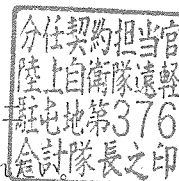 分任契約担当官
陸上自衛隊遠軽
駐屯地第376
会計隊長之印